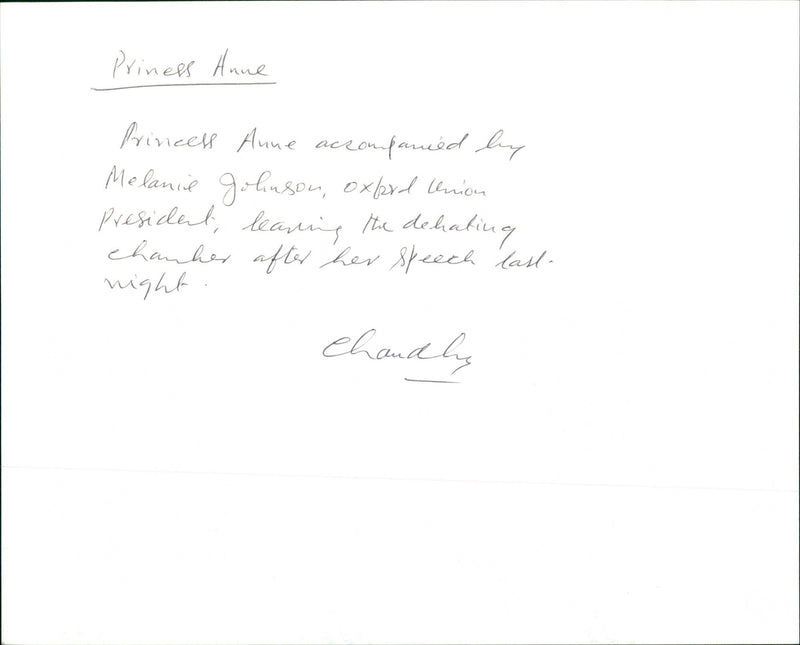 Princess Anne
Princess Anne accompanied by
Melanie Johnson, Oxford Union
President, leaving the debating
chamber after her speech last
night.
Chaudhry